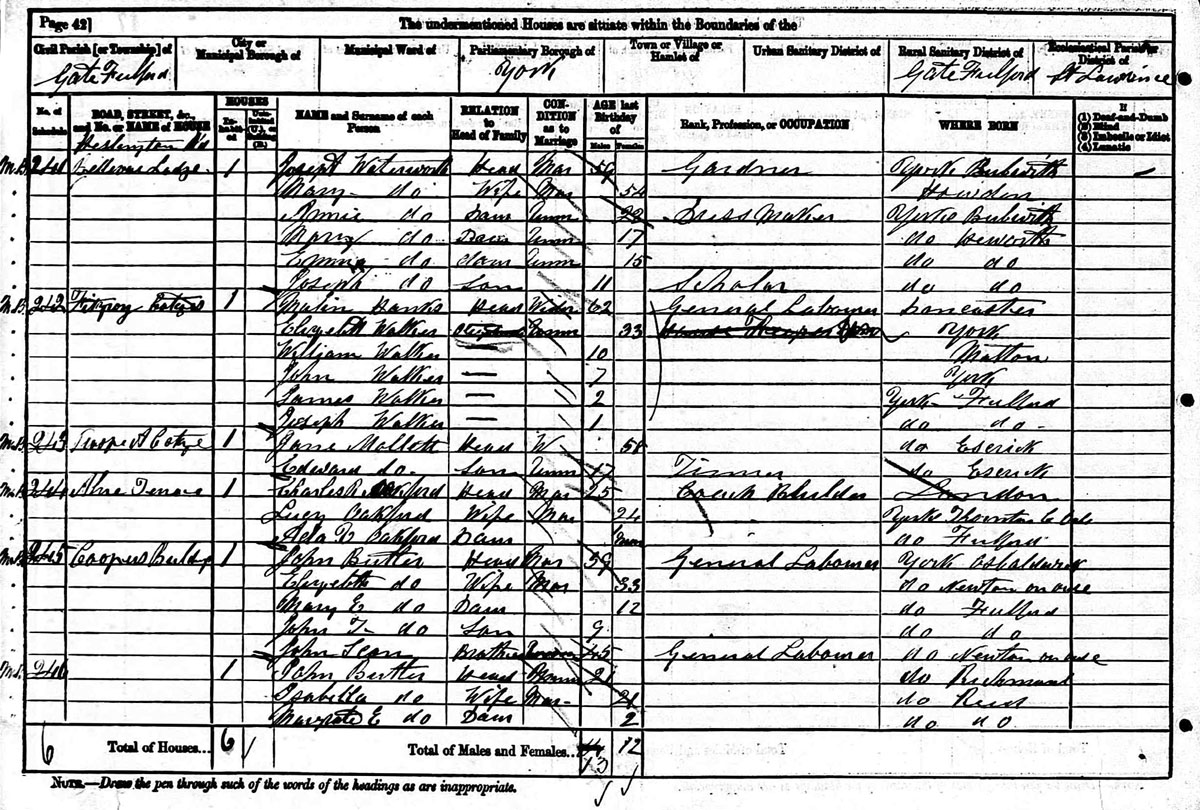 Page 42]
The undermentioned Houses are situate within the Boundaries of the
Civil Parish [or Township] of
City or Municipal Borough of
Municipal Ward of
Parliamentary Borough of
Town or Village or Hamlet of
Urban Sanitary District of
Rural Sanitary District of
Ecclesiastical Parish or District of
Gate Fulford York Gate Fulford St Lawrence
No. of Schedule
ROAD, STREET, &c., and No. or NAME of HOUSE
HOUSES
Inhabited
Uninhabited (U.), or Building (B.)
NAME and Surname of each Person
RELATION to Head of Family
CONDITION as to Marriage
AGE last Birthday of
Males Females
Rank, Profession, or OCCUPATION
WHERE BORN
If
(1) Deaf-and-Dumb
(2) Blind
(3) Imbecile or Idiot
(4) Lunatic
Heslington Rd
241 Bellevue Lodge 1 Joseph Waterworth Head Mar Gardner York Bubwith
Mary do Wife Mar 54 Howdon
Annie do Daur Unm 22 Dress Maker York Bubwith
Mary do Daur Unm 17 do Heworth
Emma do Daur Unm 15 do do
Joseph do Son 11 Scholar do do
242 1 Banks Head Widr 62 General Labourer Lancaster
Elizabeth Walker Unm 33 York
William Walker — 10 Malton
John Walker — 7 York
James Walker — 2 York Fulford
Joseph Walker — 1 do do
243 1 Jane Head W 58 do Escrick
Edward do Son Unm 17 do Escrick
244 1 Charles R Oakford Head Mar 25 Coach Builder London
Lucy Oakford Wife Mar 24 York Thornton
Ada Oakford Daur do Fulford
245 Coopers 1 John Butler Head Mar 59 General Labourer York Osbaldwick
Elizabeth do Wife Mar 33 do Newton on ouse
Mary E do Daur 12 do Fulford
John T do Son 9 do do
John Brother 45 General Labourer do Newton on ouse
246 1 John Butler Head 21 do Richmond
Isabella do Wife Mar 21 do
E do Daur 2 do do
6 Total of Houses... 6 Total of Males and Females... 13 12
NOTE.—Draw the pen through such of the words of the headings as are inappropriate.